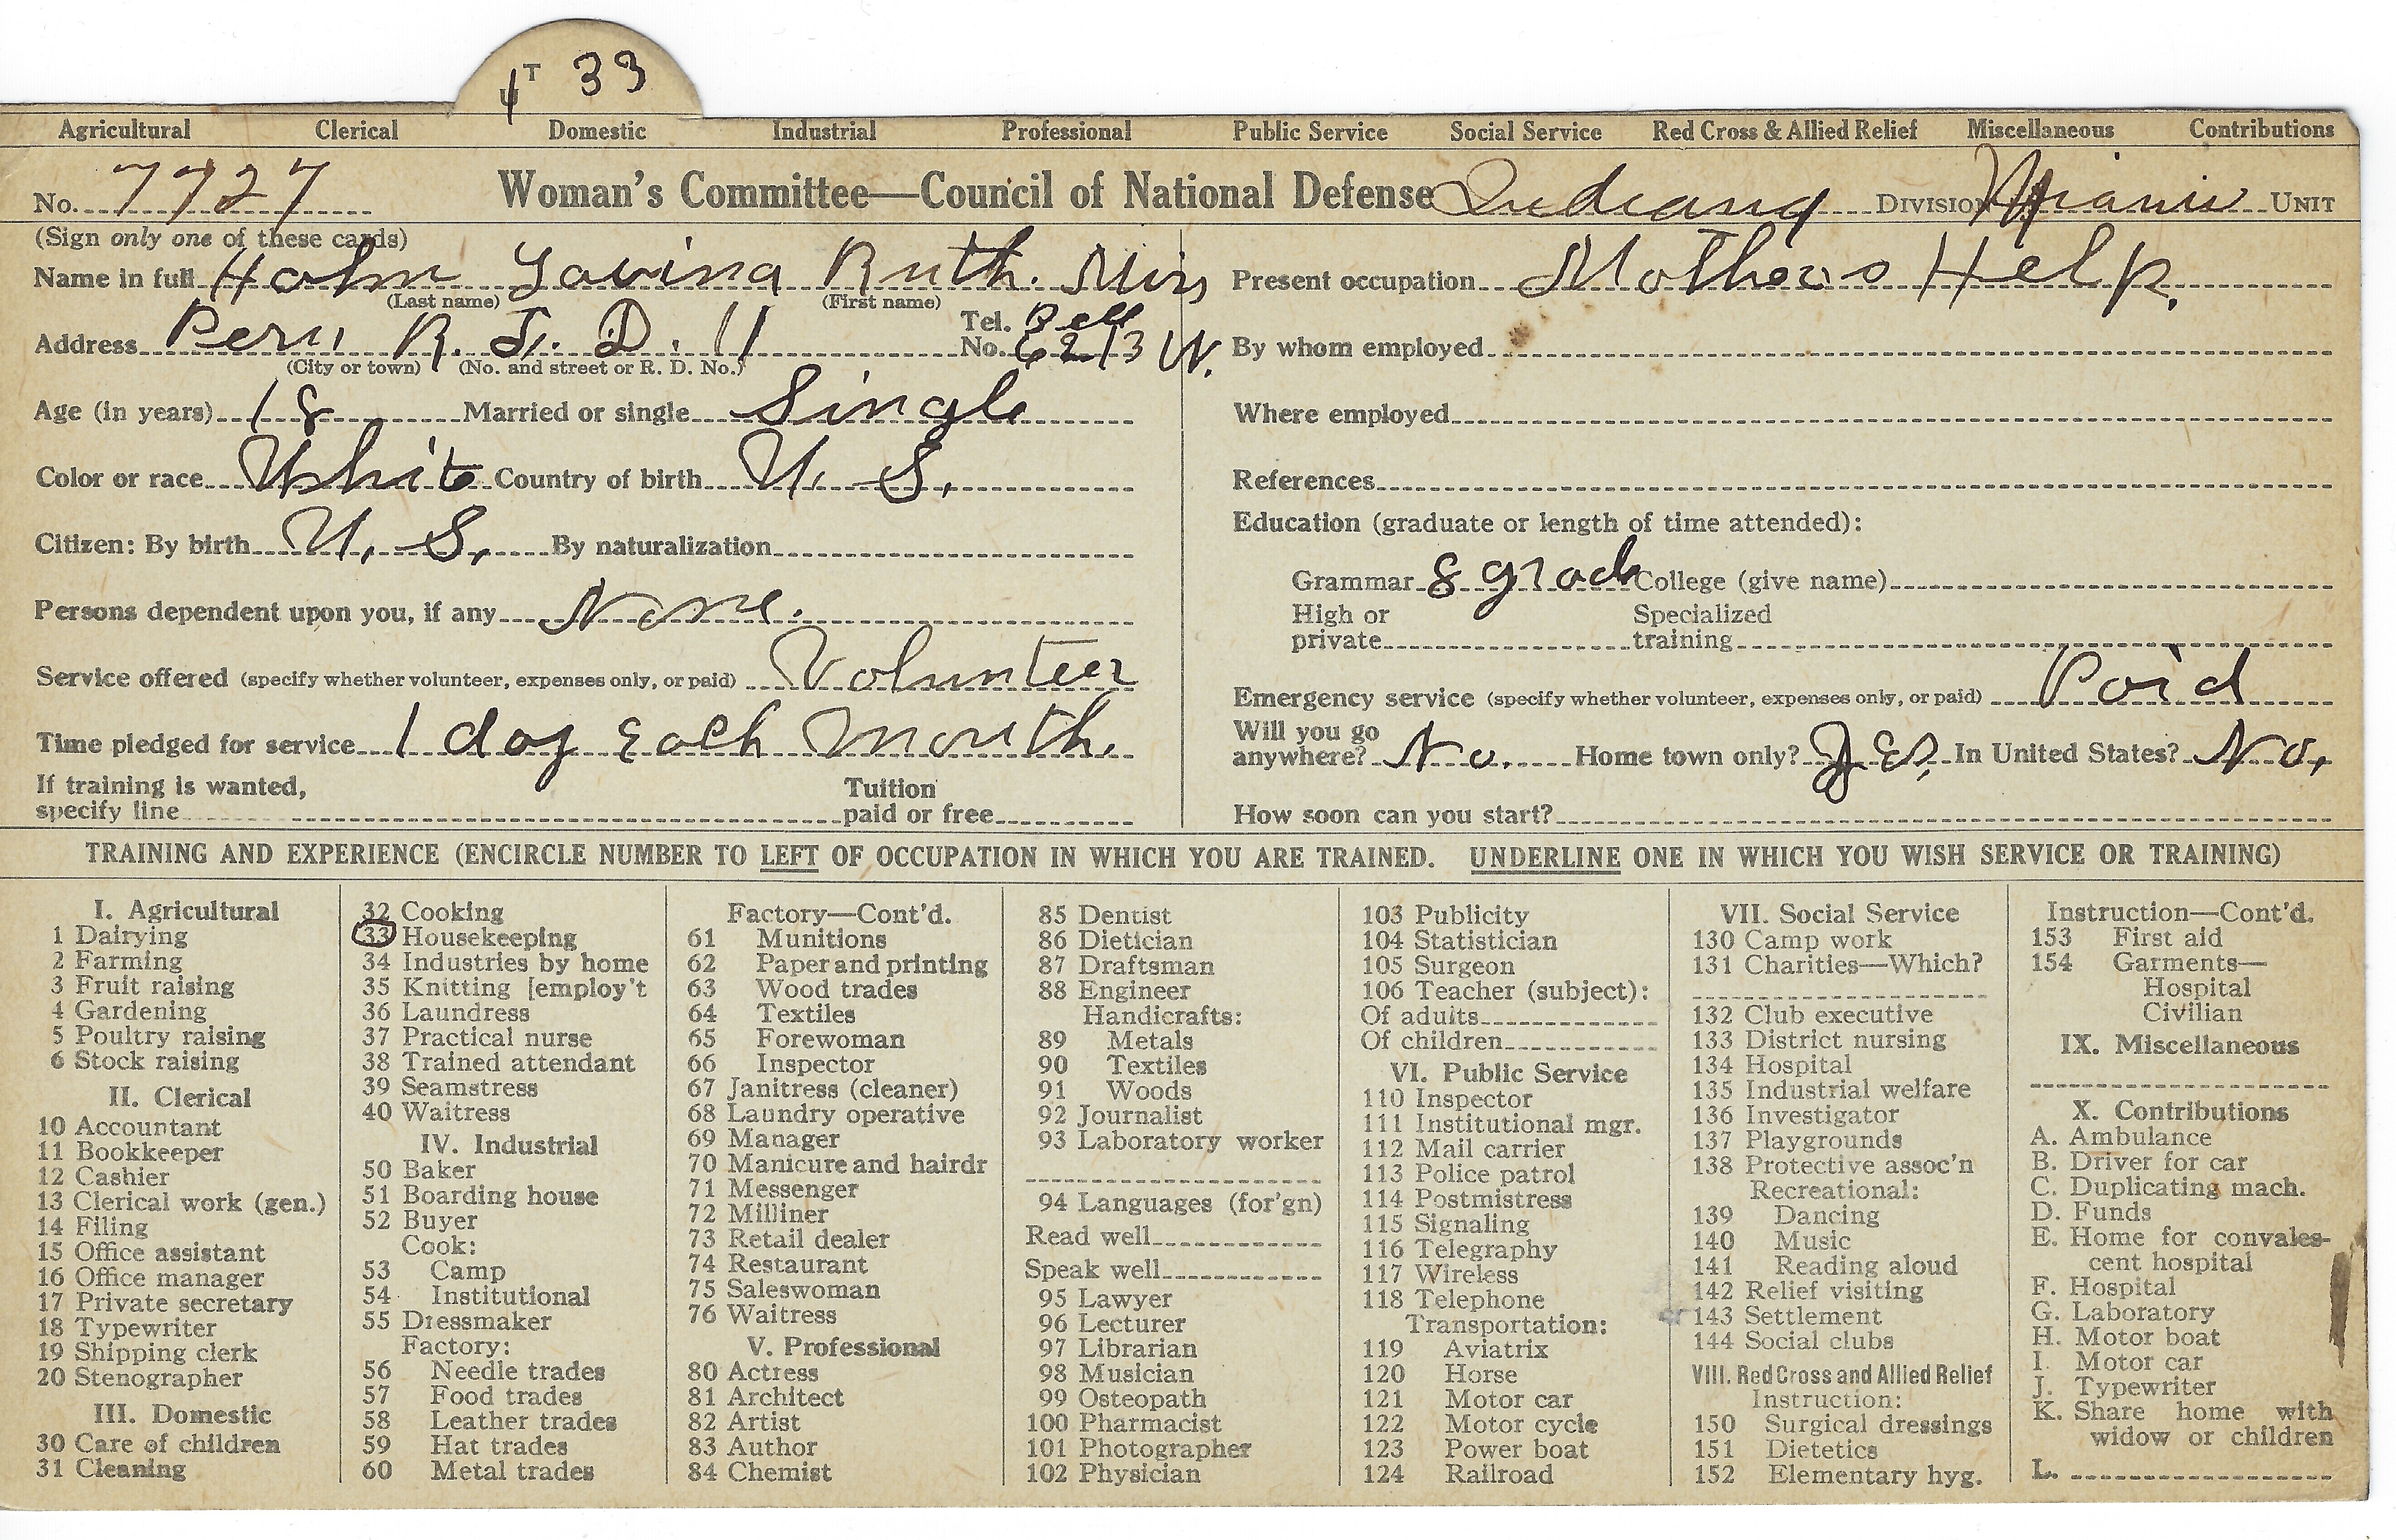 T 33
U
Agricultural Clerical Domestic Industrial Professional Public Service Social Service Red Cross & Allied Relief Miscellaneous Contributions
No. 7727 Woman's Committee—Council of National Defense Indiana DIVISION Miami UNIT
(Sign only one of these cards)
Name in full Hahn Lovina Ruth. Miss
(Last name) (First name)
Address Peru R. F. D. 11 Tel. No. Bell 6213 W.
(City or town) (No. and street or R. D. No.)
Age (in years) 18 Married or single Single
Color or race White Country of birth U. S.
Citizen: By birth U. S. By naturalization
Persons dependent upon you, if any None.
Service offered (specify whether volunteer, expenses only, or paid) Volunteer
Time pledged for service 1 day Each Month.
If training is wanted, specify line Tuition paid or free
Present occupation Mothers Help.
By whom employed
Where employed
References
Education (graduate or length of time attended):
Grammar 8 grade College (give name)
High or private Specialized training
Emergency service (specify whether volunteer, expenses only, or paid) Paid
Will you go anywhere? No. Home town only? Yes. In United States? No,
How soon can you start?
TRAINING AND EXPERIENCE (ENCIRCLE NUMBER TO LEFT OF OCCUPATION IN WHICH YOU ARE TRAINED. UNDERLINE ONE IN WHICH YOU WISH SERVICE OR TRAINING)
I. Agricultural
1 Dairying
2 Farming
3 Fruit raising
4 Gardening
5 Poultry raising
6 Stock raising
II. Clerical
10 Accountant
11 Bookkeeper
12 Cashier
13 Clerical work (gen.)
14 Filing
15 Office assistant
16 Office manager
17 Private secretary
18 Typewriter
19 Shipping clerk
20 Stenographer
III. Domestic
30 Care of children
31 Cleaning
32 Cooking
33 Housekeeping
34 Industries by home
35 Knitting [employ't
36 Laundress
37 Practical nurse
38 Trained attendant
39 Seamstress
40 Waitress
IV. Industrial
50 Baker
51 Boarding house
52 Buyer
Cook:
53 Camp
54 Institutional
55 Dressmaker
Factory:
56 Needle trades
57 Food trades
58 Leather trades
59 Hat trades
60 Metal trades
Factory—Cont'd.
61 Munitions
62 Paper and printing
63 Wood trades
64 Textiles
65 Forewoman
66 Inspector
67 Janitress (cleaner)
68 Laundry operative
69 Manager
70 Manicure and hairdr
71 Messenger
72 Milliner
73 Retail dealer
74 Restaurant
75 Saleswoman
76 Waitress
V. Professional
80 Actress
81 Architect
82 Artist
83 Author
84 Chemist
85 Dentist
86 Dietician
87 Draftsman
88 Engineer
Handicrafts:
89 Metals
90 Textiles
91 Woods
92 Journalist
93 Laboratory worker
94 Languages (for'gn)
Read well
Speak well
95 Lawyer
96 Lecturer
97 Librarian
98 Musician
99 Osteopath
100 Pharmacist
101 Photographer
102 Physician
103 Publicity
104 Statistician
105 Surgeon
106 Teacher (subject):
Of adults
Of children
VI. Public Service
110 Inspector
111 Institutional mgr.
112 Mail carrier
113 Police patrol
114 Postmistress
115 Signaling
116 Telegraphy
117 Wireless
118 Telephone
Transportation:
119 Aviatrix
120 Horse
121 Motor car
122 Motor cycle
123 Power boat
124 Railroad
VII. Social Service
130 Camp work
131 Charities—Which?
132 Club executive
133 District nursing
134 Hospital
135 Industrial welfare
136 Investigator
137 Playgrounds
138 Protective assoc'n
Recreational:
139 Dancing
140 Music
141 Reading aloud
142 Relief visiting
143 Settlement
144 Social clubs
VIII. Red Cross and Allied Relief
Instruction:
150 Surgical dressings
151 Dietetics
152 Elementary hyg.
Instruction—Cont'd.
153 First aid
154 Garments—
Hospital
Civilian
IX. Miscellaneous
X. Contributions
A. Ambulance
B. Driver for car
C. Duplicating mach.
D. Funds
E. Home for convales-
cent hospital
F. Hospital
G. Laboratory
H. Motor boat
I. Motor car
J. Typewriter
K. Share home with
widow or children
L.